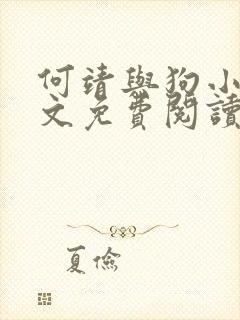 何靖與狗小
文免費閱讀
夏儉